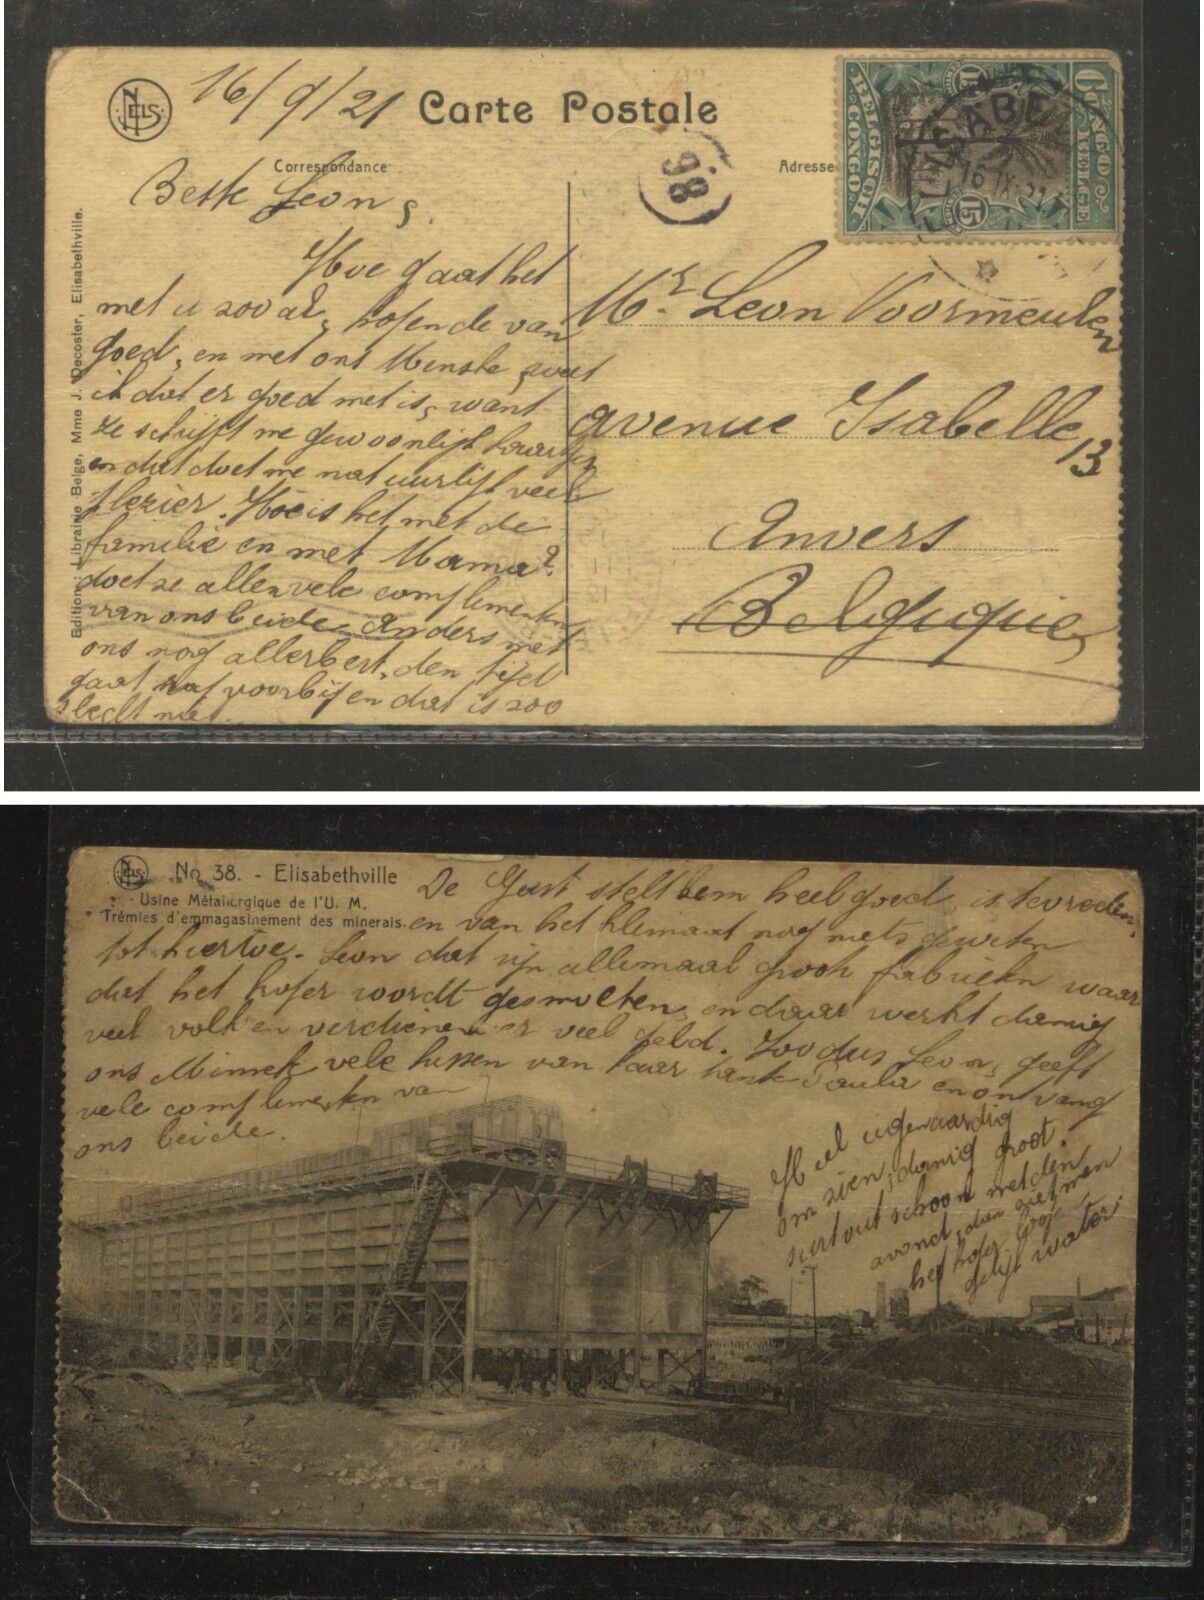 NELS
16/9/21
Carte Postale
Correspondance
Adresse
98
CONGO BELGE
BELGISCH CONGO
15
15
16 IX 21
Edition: Librairie Belge, Mme J. Decoster, Elisabethville.
Beste Leon,
Hoe gaat het
met u zoo al, hopende van
goed, en met ons Menske, weet
ik dat er goed met is, want
ze schrijft me gewoonlijk kaartjes
en dat doet me natuurlijk veel
plezier. Hoe is het met de
familie en met Mama?
doet ze allen vele complimenten
van ons beide. Anders met
ons nog allerbest, den tijd
gaat rap voorbij en dat is zoo
slecht niet.
Mr. Leon Voormeulen
avenue Isabelle 13
Anvers
Belgique
NELS No 38. - Elisabethville
Usine Métallurgique de l'U. M.
Trémies d'emmagasinement des minerais.
De Gust stelt hem heel goed, is tevreden,
en van het klimaat nog niets geweten
tot hiertoe. Leon dat zijn allemaal groote fabrieken waar
dat het koper wordt gesmolten, en daar werkt danig
veel volk en verdienen er veel geld. Zoo dus Leon, geeft
ons Minnek vele kussen van haar tante Paula en ontvang
vele complimenten van
ons beide.
Heel eigenaardig
om zien, danig groot.
surtout schoon met den
avond, dan ziet men
het koper loopen
gelijk water.